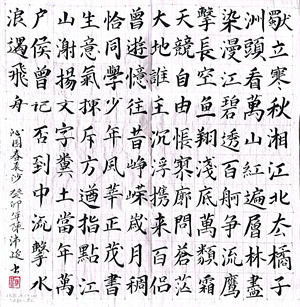 獨立寒秋湘江北去橘子
洲頭看萬山紅遍層林盡
染漫江碧透百舸爭流鷹
擊長空魚翔淺底萬類霜
天競自由悵寥廓問蒼茫
大地誰主沉浮攜來百侶
曾遊憶往昔崢嶸歲月稠
恰同學少年風華正茂書
生意氣揮斥方遒指點江
山激揚文字糞土當年萬
戶侯曾記否到中流擊水
浪遏飛舟
沁園春長沙 癸卯年陳沛